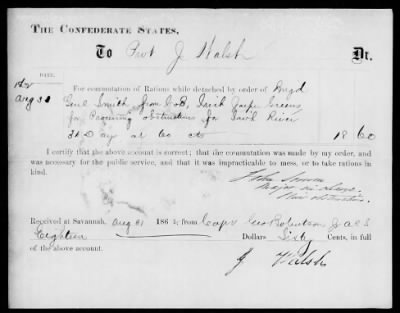 THE CONFEDERATE STATES,
To Pvt J Walsh Dr.
DATE.
1862
Aug 31
For commutation of Rations while detached by order of Brigd
Genl Smith from Co B, Irish Jasper Greens
for Preparing obstructions for Savh River
31 Day at 60 cts 18 60
I certify that the above account is correct; that the commutation was made by my order, and
was necessary for the public service, and that it was impracticable to mess, or to take rations in
kind.
John
Major in charge
Riv obstructions
Received at Savannah, Aug 31 1862, from Capt Robertson A C S
Eighteen Dollars Sixty Cents, in full
of the above account.
J Walsh